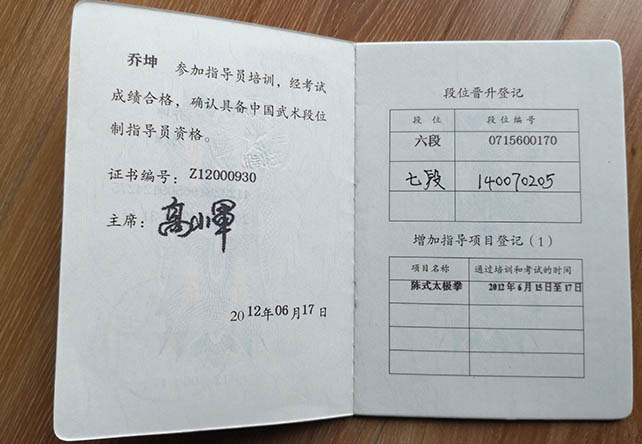 乔坤 参加指导员培训，经考试
成绩合格，确认具备中国武术段位
制指导员资格。
证书编号：Z12000930
主席：高小军
2012年06月17日
段位晋升登记
段 位 段位编号
六段 0715600170
七段 140070205
增加指导项目登记（1）
项目名称 通过培训和考试的时间
陈式太极拳 2012年6月15日至17日